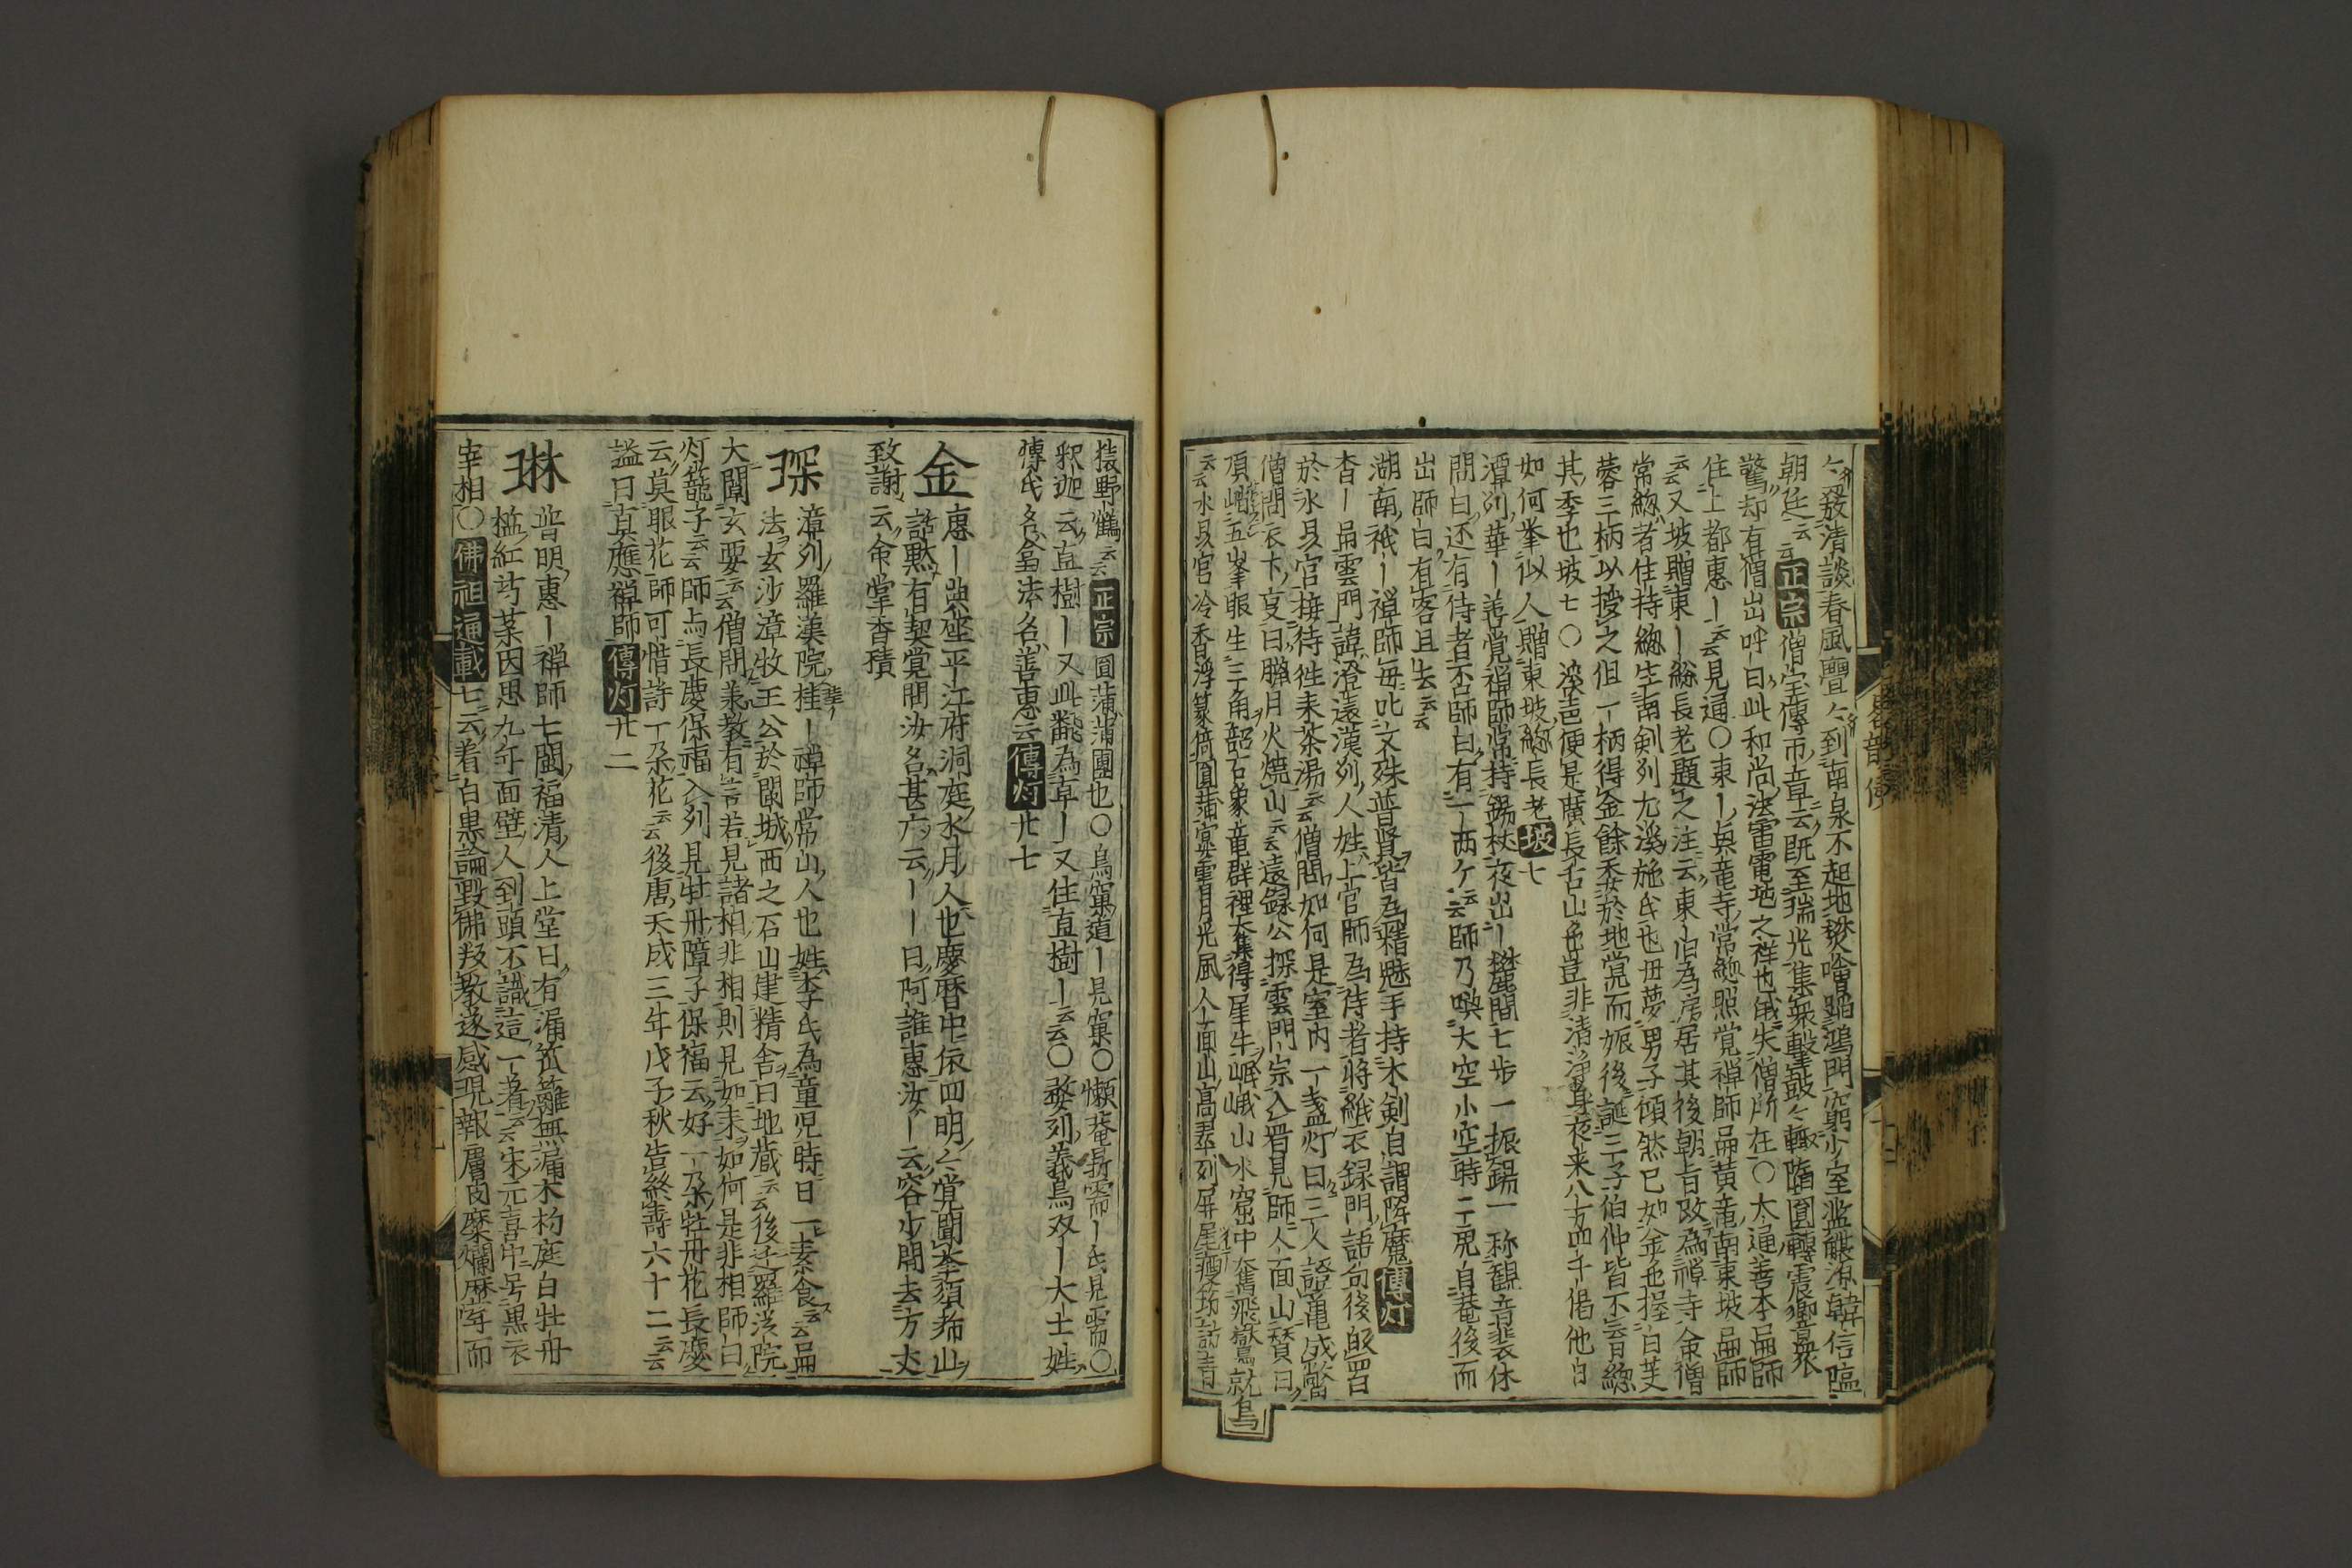 〻發清談春風亹〻到南泉不起地燓噲蹋鴻門窮少室濫觴源韓信臨
朝廷云云正宗僧宝傳帀章云既至瑞光集衆擊鼓〻輙墮圓轉震響衆
驚却有僧出呼曰此和尚法雷電地之祥也俄失僧所在〇大通善本品師
住上都惠ー云云見通〇東ー与竜寺常緫照覚禅師品黄竜南東坡品師
云云又坡贈東ー緫長老題之注云東ー旧為房居其後朝旨改為禅寺命僧
常緫者住持緫生南剣列尤溪施氏也母夢男子頎然已如金也握白芙
蓉三柄以授之但一柄得金餘委於地覚而娠後誕三子伯仲皆不育緫
其季也坡七〇溪声便是廣長舌山色豈非清浄身夜来八万四千偈他日
如何挙似人贈東坡緫長老坡七
潭列華ー善覚禅師常持錫杖夜出ー麓間七歩一振錫一称観音裴休
問曰还有侍者否師曰有一両ケ云云師乃喚大空小空時二虎自菴後而
出師曰有客且去云云
湖南祇ー禅師毎叱文殊普賢皆為精魅手持木剣自謂降魔傳灯
香ー品雲門諱澄遠漢列人姓上官師為侍者将紙衣録門語句後皈罟
於水晶宮接待徃来茶湯云云僧問如何是室内一盞灯曰三人證亀成鱉
僧問衣下亨曰臘月火燒山云云遠録公探雲門宗入晋見師人面山賛曰
頂巘五峯眼生三角韶石象竜群裡大集得犀牛岷峨山水窟中奮飛獄鸑就
云云水晶宮冷香浮篆倚圓蒲寞雪月光風人面山高翠列屏尾瘦笻訪青
猿野鶴云云正宗圓蒲蒲團也〇鳥窠道ー見窠〇懶菴昜需ー氏見需〇
釈迦云直樹ー又此翻為卓ー又住直樹ー云云〇婺列義烏双ー大士姓
傅氏名翕法名善惠云傳灯廿七
金惠ー典座平江府洞庭水月人也慶暦中依四明〻覚聞挙須弥山
話黙有契覚問汝名甚广云ーー曰阿誰惠汝ー云容少間去方丈
致謝云命掌香積
琛漳列羅漢院桂ー禅師常山人也姓李氏為童児時日一素食云云品
法玄沙漳牧王公於閩城西之石山建精舎曰地蔵云云後迁羅漢院
大闡玄要云云僧問兼教有言若見諸相非相則見如来如何是非相師曰
灯籠子云云師与長慶保福入列見牡丹障子保福云好一朶牡丹花長慶
云莫眼花師可惜許一朶花云云後唐天成三年戊子秋告終壽六十二云云
謚曰真應禅師傳灯廿二
琳普明惠ー禅師七閩福清人上堂曰有漏笊籬無漏木杓庭白牡丹
檻紅芍薬因思九年面壁人到頭不識這一著云云宋元喜中号黒衣
宰相〇佛祖通載七云着白黒論毀佛叛教遂感現報層肉糜爛歴䇿而